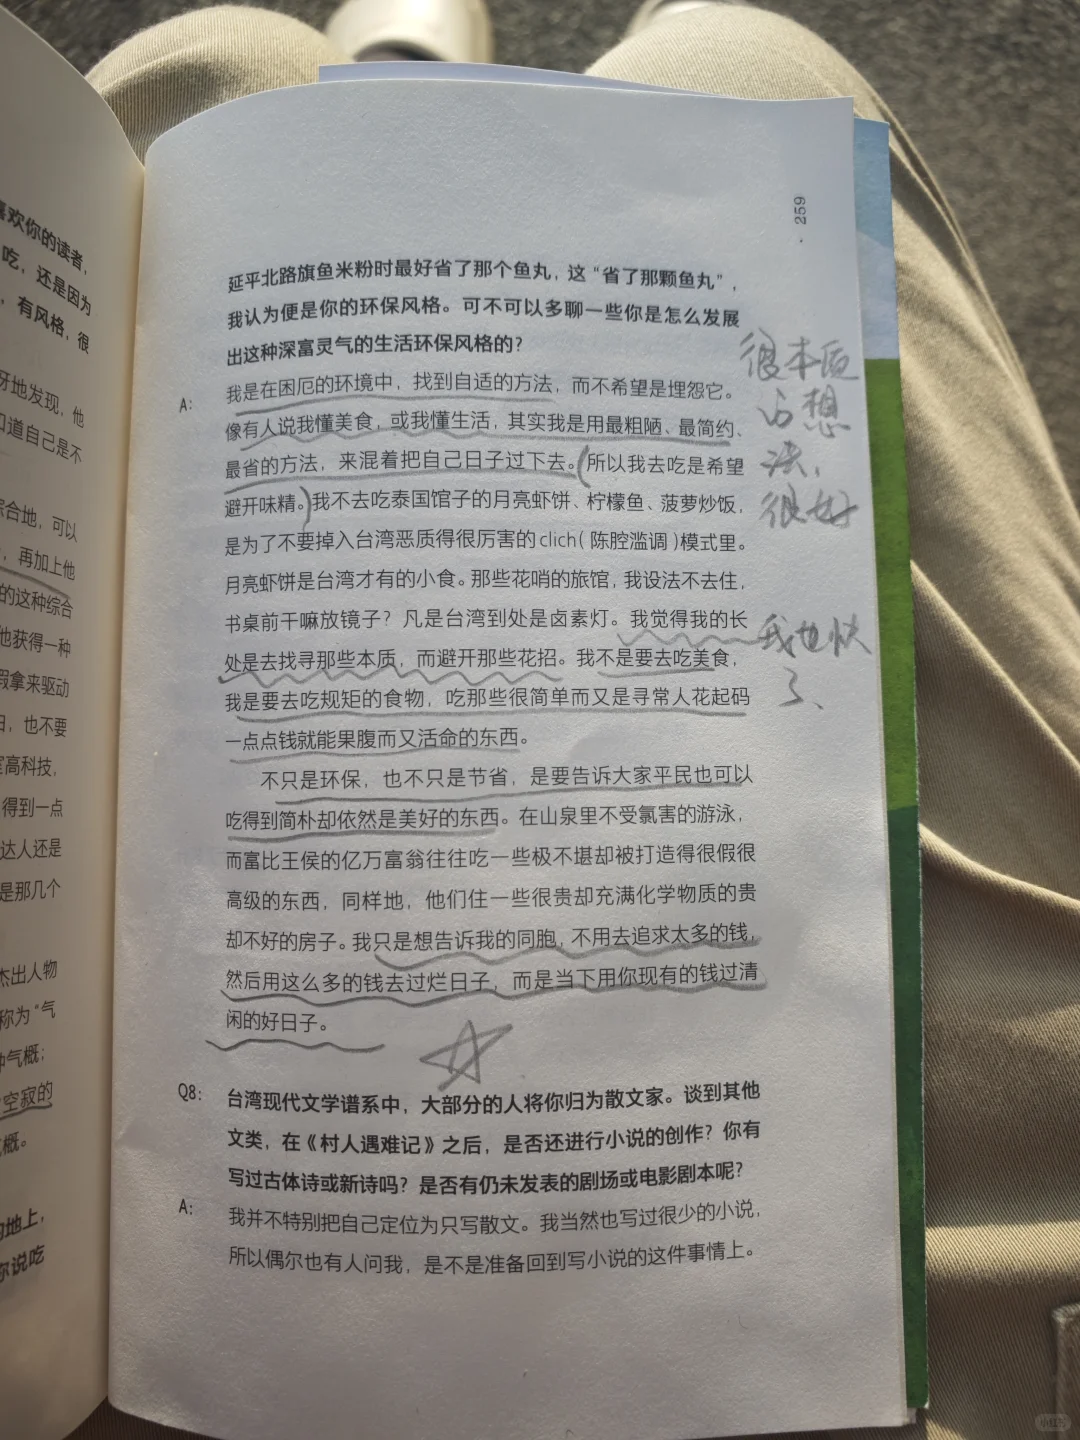 喜欢你的读者、
吃，还是因为
，有风格，很
牙地发现，他
口道自己是不
综合地，可以
，再加上他
的这种综合
他获得一种
假拿来驱动
日，也不要
高科技，
得到一点
达人还是
是那几个
杰出人物
称为“气
中气概；
空寂的
概。
的地上，
你说吃
259
延平北路旗鱼米粉时最好省了那个鱼丸，这“省了那颗鱼丸”，
我认为便是你的环保风格。可不可以多聊一些你是怎么发展
出这种深富灵气的生活环保风格的？
A：我是在困厄的环境中，找到自适的方法，而不希望是埋怨它。
像有人说我懂美食，或我懂生活，其实我是用最粗陋、最简约、
最省的方法，来混着把自己日子过下去。所以我去吃是希望
避开味精。我不去吃泰国馆子的月亮虾饼、柠檬鱼、菠萝炒饭，
是为了不要掉入台湾恶质得很厉害的clich（陈腔滥调）模式里。
月亮虾饼是台湾才有的小食。那些花哨的旅馆，我设法不去住，
书桌前干嘛放镜子？凡是台湾到处是卤素灯。我觉得我的长
处是去找寻那些本质，而避开那些花招。我不是要去吃美食，
我是要去吃规矩的食物，吃那些很简单而又是寻常人花起码
一点点钱就能果腹而又活命的东西。
不只是环保，也不只是节省，是要告诉大家平民也可以
吃得到简朴却依然是美好的东西。在山泉里不受氯害的游泳，
而富比王侯的亿万富翁往往吃一些极不堪却被打造得很假很
高级的东西，同样地，他们住一些很贵却充满化学物质的贵
却不好的房子。我只是想告诉我的同胞，不用去追求太多的钱，
然后用这么多的钱去过烂日子，而是当下用你现有的钱过清
闲的好日子。
Q8：台湾现代文学谱系中，大部分的人将你归为散文家。谈到其他
文类，在《村人遇难记》之后，是否还进行小说的创作？你有
写过古体诗或新诗吗？是否有仍未发表的剧场或电影剧本呢？
A：我并不特别把自己定位为只写散文。我当然也写过很少的小说，
所以偶尔也有人问我，是不是准备回到写小说的这件事情上。
很本质
的想
法，
很好
我也快
了、
小红书